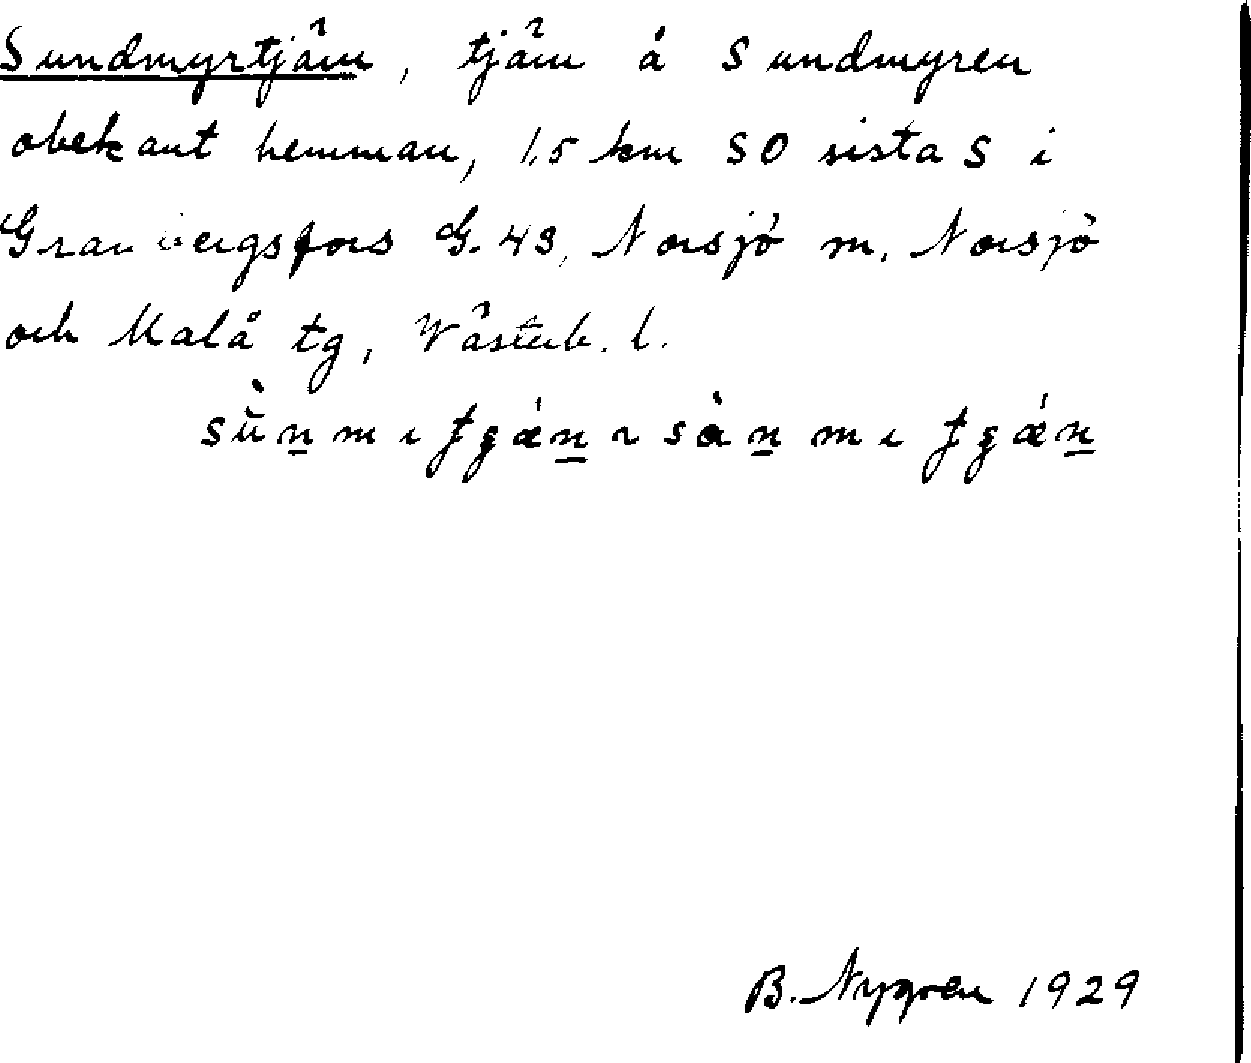 Sundmyrtjärn, tjärn å Sundmyren
obekant hemman, 1,5 km SO sista S i
Granbergsfors G. 43, Norsjö sn, Norsjö
och Malå tg, Västerb. l.
B. Nygren 1929